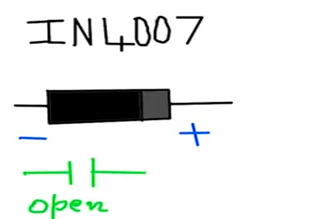 IN4007
- +
open